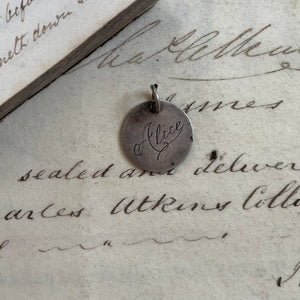 before
melt down
Chas. Atkins
James
Alice
sealed and deliver
harles Atkins Colli